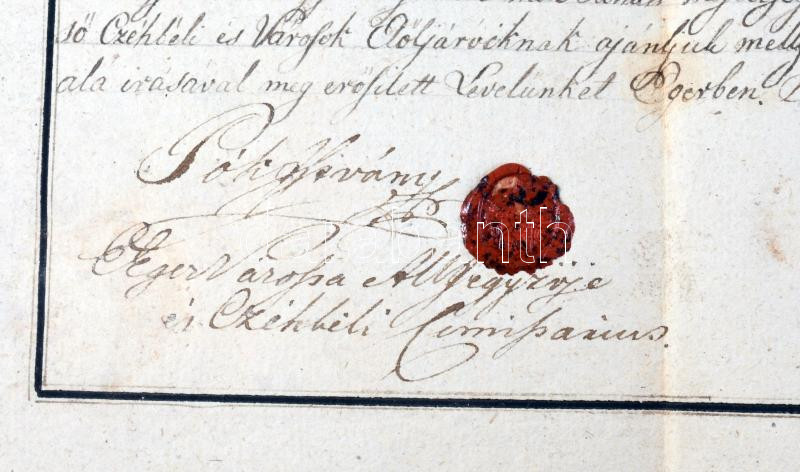 ső Czéhbéli és Városok Előljáróiknak ajánljuk
alá irásával meg erősitett Levelünket Egerben.
Pók István
Eger Várossa All Jegyzője
és Czéhbéli Comissarius.